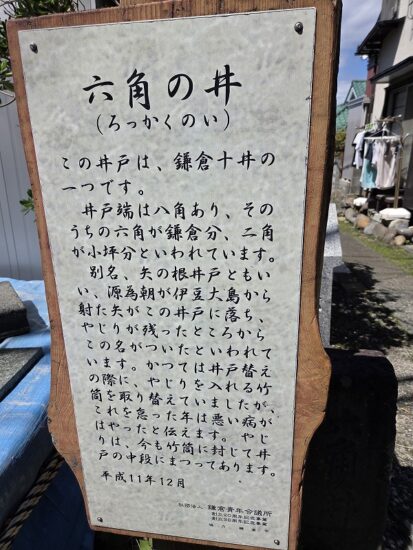 六角の井
(ろっかくのい)
この井戸は、鎌倉十井の
一つです。
井戸端は八角あり、その
うちの六角が鎌倉分、二角
が小坪分といわれています。
別名、矢の根井戸ともい
い、源為朝が伊豆大島から
射た矢がこの井戸に落ち、
やじりが残ったところから
この名がついたといわれて
います。かつては井戸替え
の際に、やじりを入れる竹
筒を取り替えていましたが、
これを怠った年は悪い病が
はやったと伝えます。やじ
りは、今も竹筒に封じて井
戸の中段にまつってあります。
平成11年12月
社団法人 鎌倉青年会議所